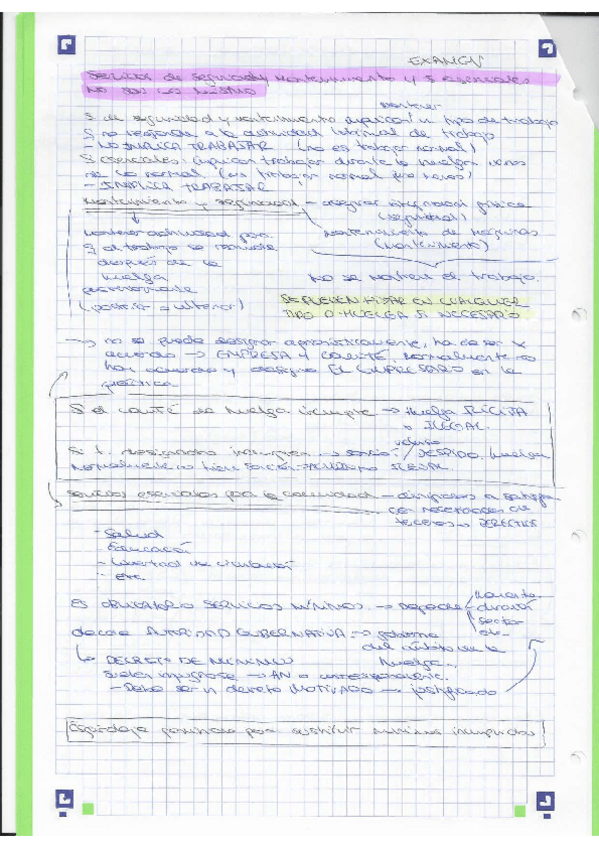 EXAMEN
Servicios de seguridad y mantenimiento y S esenciales
no son lo mismo
mantener
S de seguridad y mantenimiento implican tipo de trabajo
S no responde a la actividad normal de trabajo
- NO IMPLICA TRABAJAR (no es trabajar normal)
S esenciales: implican trabajar durante la huelga
de lo normal (es trabajar normal pero menos)
- IMPLICA TRABAJAR
Mantenimiento y seguridad - asegurar integridad física
(seguridad)
mantenimiento de máquinas
(mantenimiento)
mantener actividad para
q el trabajo se reanude
después de la
huelga
(posterior = ulterior)
No se mantiene el trabajo.
SE PUEDEN FIJAR EN CUALQUIER
TIPO D HUELGA SI NECESARIO
→ no se puede designar, ha de ser x
acuerdo → EMPRESA Y COMITÉ. Normalmente no
hay acuerdo y designa EL EMPRESARIO en la
práctica
Si el comité de huelga incumple → Huelga ILÍCITA
o ILEGAL.
Si t. designados incumplen → DESPIDO.
ILEGAL.
Servicios esenciales para la comunidad - dirigidos a satisfa
cer necesidades de
terceros → DERECHOS
- Salud
- Educación
- Libertad de circulación
- etc.
ES OBLIGATORIO SERVICIOS MÍNIMOS. → depende
duración
sector
etc.
decide AUTORIDAD GUBERNATIVA → gobierno
del ámbito de la
huelga.
↳ DECRETO DE MÍNIMOS
Suelen impugnarse → AN o
- Debe ser 1 decreto MOTIVADO → justificado
Esquirolaje permitido para sustituir mínimos incumplidos